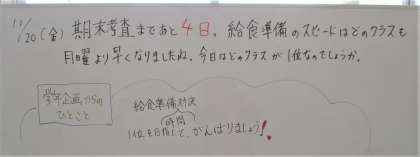 11/20(金) 期末考査まであと4日。給食準備のスピードはどのクラスも
月曜より早くなりましたね。今日はどのクラスが1位なのでしょうか。
学年企画からの
ひとこと
給食準備対決
時間
1位を目指して、がんばりましょう!